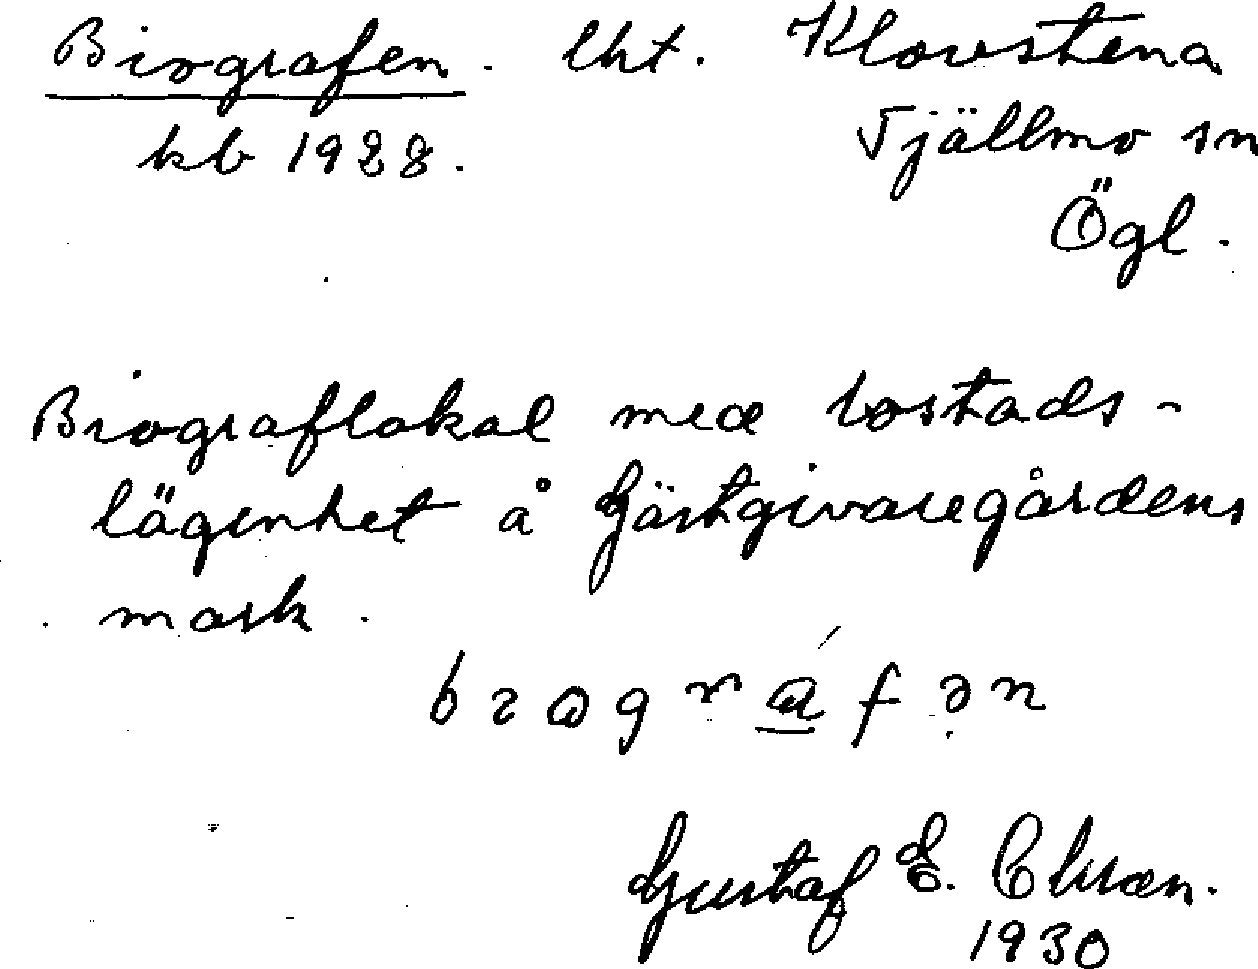 Biografen. lht. Klovstena
kb 1928. Tjällmo sn
Ögl.
Biograflokal med bostads-
lägenhet å Gästgivaregårdens
mark.
Gustaf E.
1930